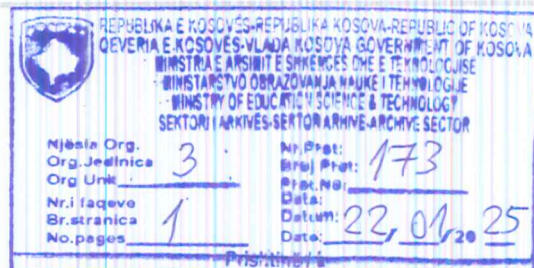 REPUBLIKA E KOSOVËS-REPUBLIKA KOSOVA-REPUBLIC OF KOSOVA
QEVERIA E KOSOVËS-VLADA KOSOVA GOVERNMENT OF KOSOVA
MINISTRIA E ARSIMIT E SHKENCËS DHE E TEKNOLOGJISË
MINISTARSTVO OBRAZOVANJA NAUKE I TEHNOLOGIJE
MINISTRY OF EDUCATION SCIENCE & TECHNOLOGY
SEKTORI I ARKIVËS-SEKTOR ARHIVE-ARCHIVE SECTOR
Njësia Org.
Org.Jedinica
Org Unit 3
Nr.i faqeve
Br.stranica
No.pages 1
Nr.Prot:
Broj Prot:
Prot.No: 173
Data:
Datum:
Date: 22, 01, 20 25